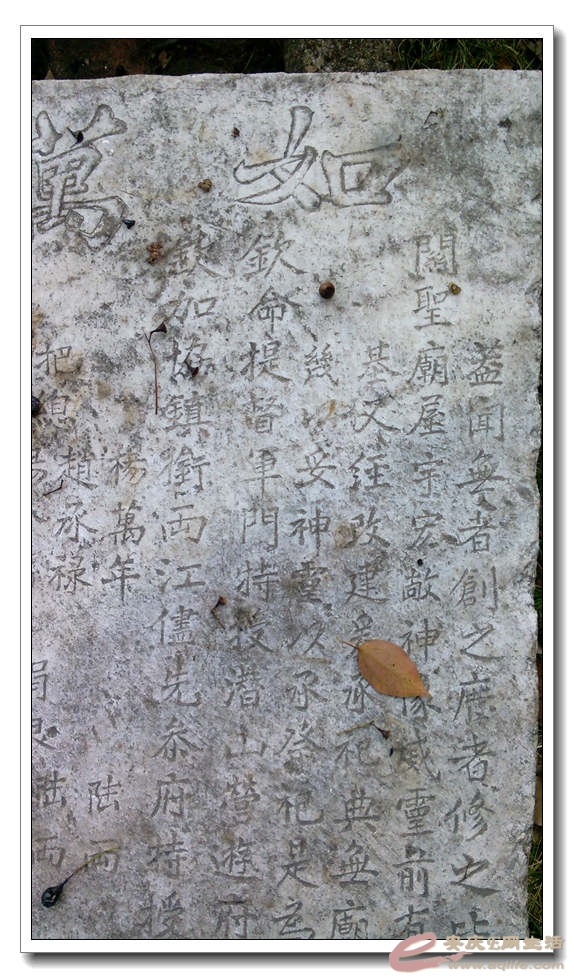 如萬
蓋聞無者創之廢者修之
關聖廟屋宇宏敞神像威靈前有
基又經改建爰承祀典無廟
幾以妥神靈以承祭祀是為
欽命提督軍門特授潛山營遊府
欽加協鎮銜両江儘先叅府特授
楊萬年 陸両
趙承祿
把 陸両
www.aqlife.com